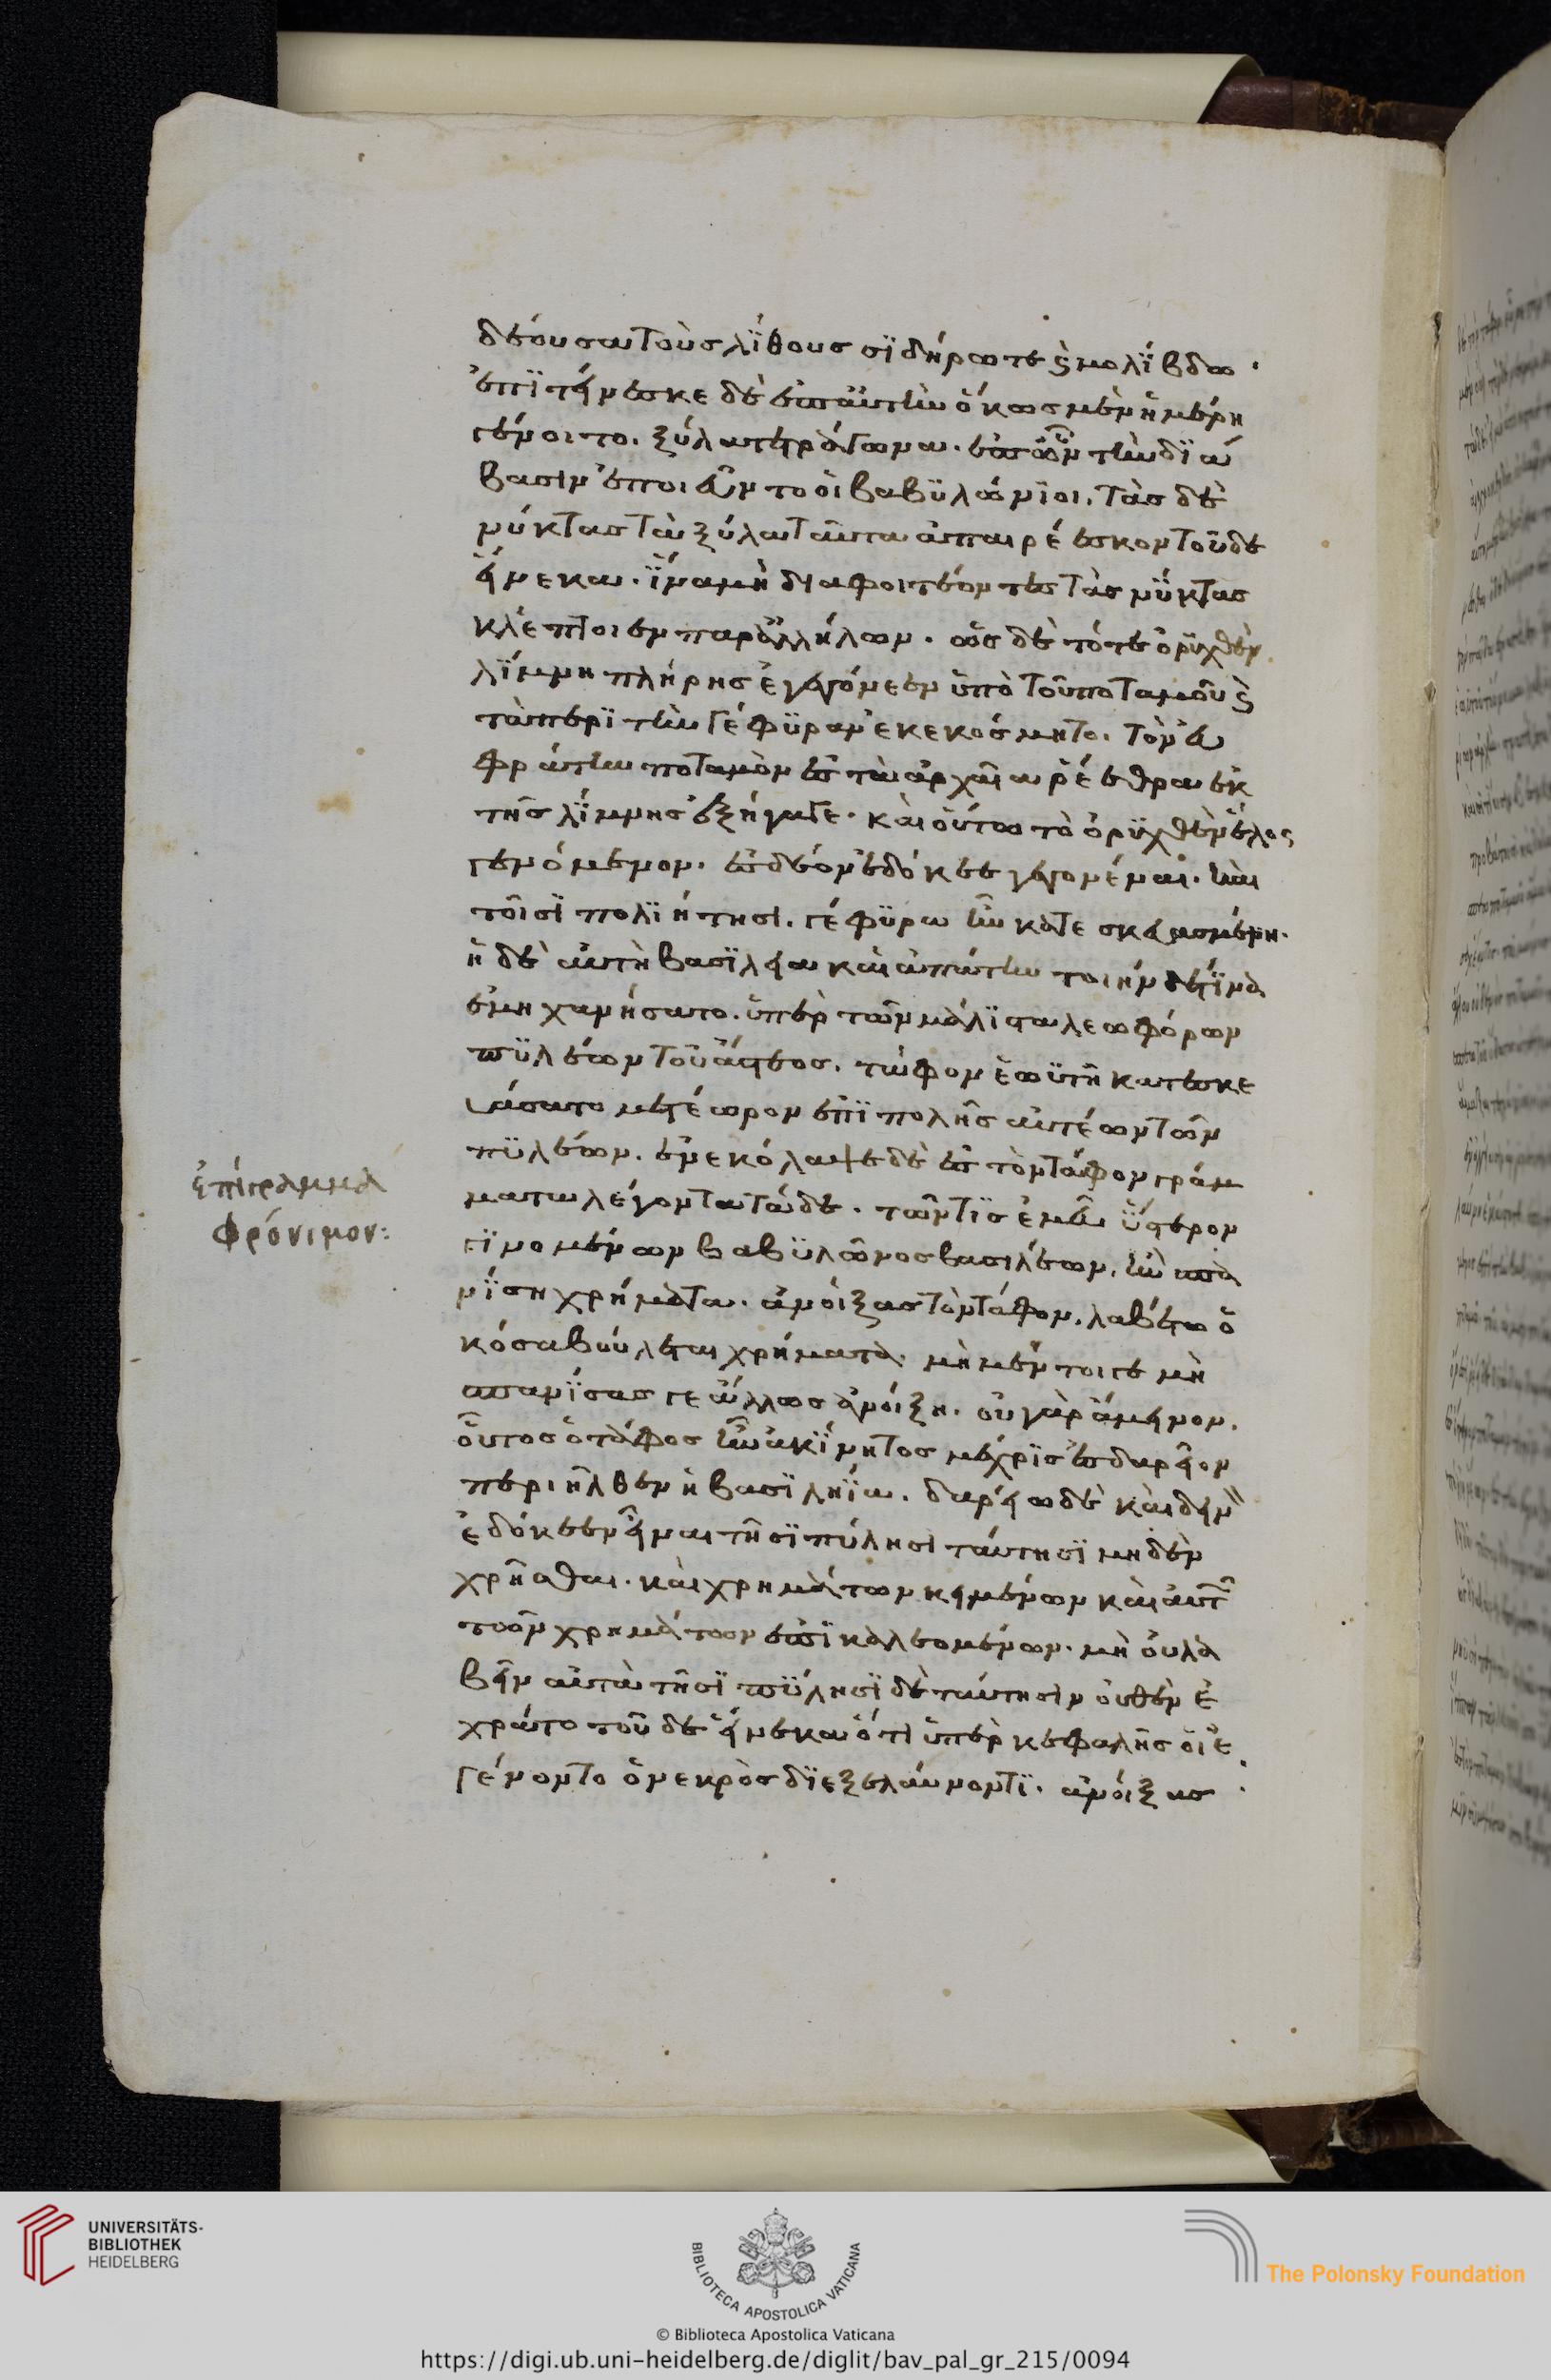 δέουσα τοὺς λίθους σιδήρω τε ϗ μολίβδω.
ἐπιτείνεσκε δὲ ἐπ' αὐτὴν ὅκως μὲν ἡμέρη
γένοιτο. ξύλα τετράγωνα. ἐπ' ὧν τὴν διά
βασιν ἐποιεῦντο οἱ βαβυλώνιοι. τὰς δὲ
νύκτας τὰ ξύλα ταῦτα ἀπαιρέεσκον τοῦδε
εἵνεκα. ἵνα μὴ διαφοιτέοντες τὰς νύκτας
κλέπτοιεν παρ' ἀλλήλων. ὡς δὲ τό τε ὀρυχθὲν
λίμνη πλήρης ἐγεγόνεεν ὑπὸ τοῦ ποταμοῦ ϗ
τὰ περὶ τὴν γέφυραν ἐκεκόσμητο. τὸν εὐ
φρήτην ποταμὸν ἐς τὰ ἀρχαῖα ῥέεθρα ἐκ
τῆς λίμνης ἐξήγαγε. καὶ οὕτω τὸ ὀρυχθὲν ἕλος
γενόμενον. ἐς δέον ἐδόκεε γεγονέναι. καὶ
τοῖσι πολιήτησι. γέφυρα ἦν κατεσκευασμένη.
ἡ δὲ αὐτὴ βασίλεια καὶ ἀπάτην τοιήνδε τινὰ
ἐμηχανήσατο. ὑπὲρ τῶν μάλιστα λεωφόρων
πυλέων τοῦ ἄστεος. τάφον ἑωυτῆ κατεσκε
υάσατο μετέωρον ἐπιπολῆς αὐτέων τῶν
πυλέων. ἐνεκόλαψε δὲ ἐς τὸν τάφον γράμ
ματα λέγοντα τάδε. τῶν τις ἐμεῦ ὕστερον
γινομένων βαβυλῶνος βασιλέων. ἢν σπα
νίση χρημάτων. ἀνοίξας τὸν τάφον. λαβέτω ὁ
κόσα βούλεται χρήματα. μὴ μέντοι γε μὴ
σπανίσας γε ἄλλως ἀνοίξη. οὐ γὰρ ἄμεινον.
οὗτος ὁ τάφος ἦν ἀκίνητος μέχρις ἐς δαρεῖον
περιῆλθεν ἡ βασιληίη. δαρείω δὲ καὶ δεινὸν
ἐδόκεεν εἶναι τῆσι πύλησι ταύτησι μηδὲν
χρῆσθαι. καὶ χρημάτων κειμένων καὶ αὐτῶν
τῶν χρημάτων ἐπικαλεομένων. μὴ οὐ λα
βεῖν αὐτὰ τῆσι πύλησι δὲ ταύτησιν οὐθὲν ἐ
χρᾶτο τοῦδε εἵνεκα ὅτι ὑπὲρ κεφαλῆς οἱ ἐ
γένοντο ὁ νεκρὸς διεξελάυνοντι. ἀνοίξας
ἐπίγραμμα
φρόνιμον:
UNIVERSITÄTS-
BIBLIOTHEK
HEIDELBERG
BIBLIOTECA APOSTOLICA VATICANA
© Biblioteca Apostolica Vaticana
The Polonsky Foundation
https://digi.ub.uni-heidelberg.de/diglit/bav_pal_gr_215/0094